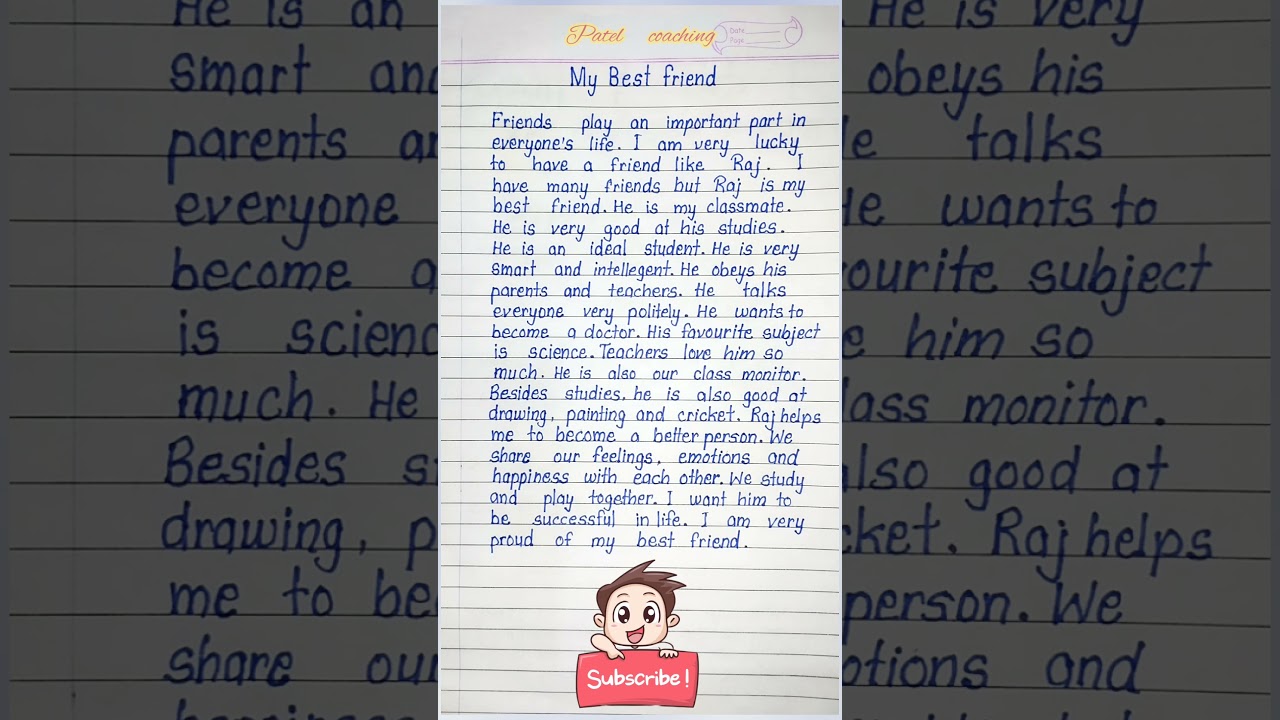 Patel coaching
Date
Page
My Best friend
Friends play an important part in
everyone's life. I am very lucky
to have a friend like Raj. I
have many friends but Raj is my
best friend. He is my classmate.
He is very good at his studies.
He is an ideal student. He is very
smart and intellegent. He obeys his
parents and teachers. He talks
everyone very politely. He wants to
become a doctor. His favourite subject
is science. Teachers love him so
much. He is also our class monitor.
Besides studies, he is also good at
drawing, painting and cricket. Raj helps
me to become a better person. We
share our feelings, emotions and
happiness with each other. We study
and play together. I want him to
be successful in life. I am very
proud of my best friend.
Subscribe!